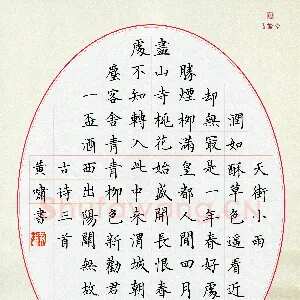 天街小雨
潤如酥草色遥看近
却無㝡是一年春好處
勝煙柳滿皇都人間四月
盡山寺桃花始盛開長恨春
處不知轉入此中來渭城朝
塵客舍青青柳色新勸君
一盃酒西出陽關無故
古诗三首
黄嘯書